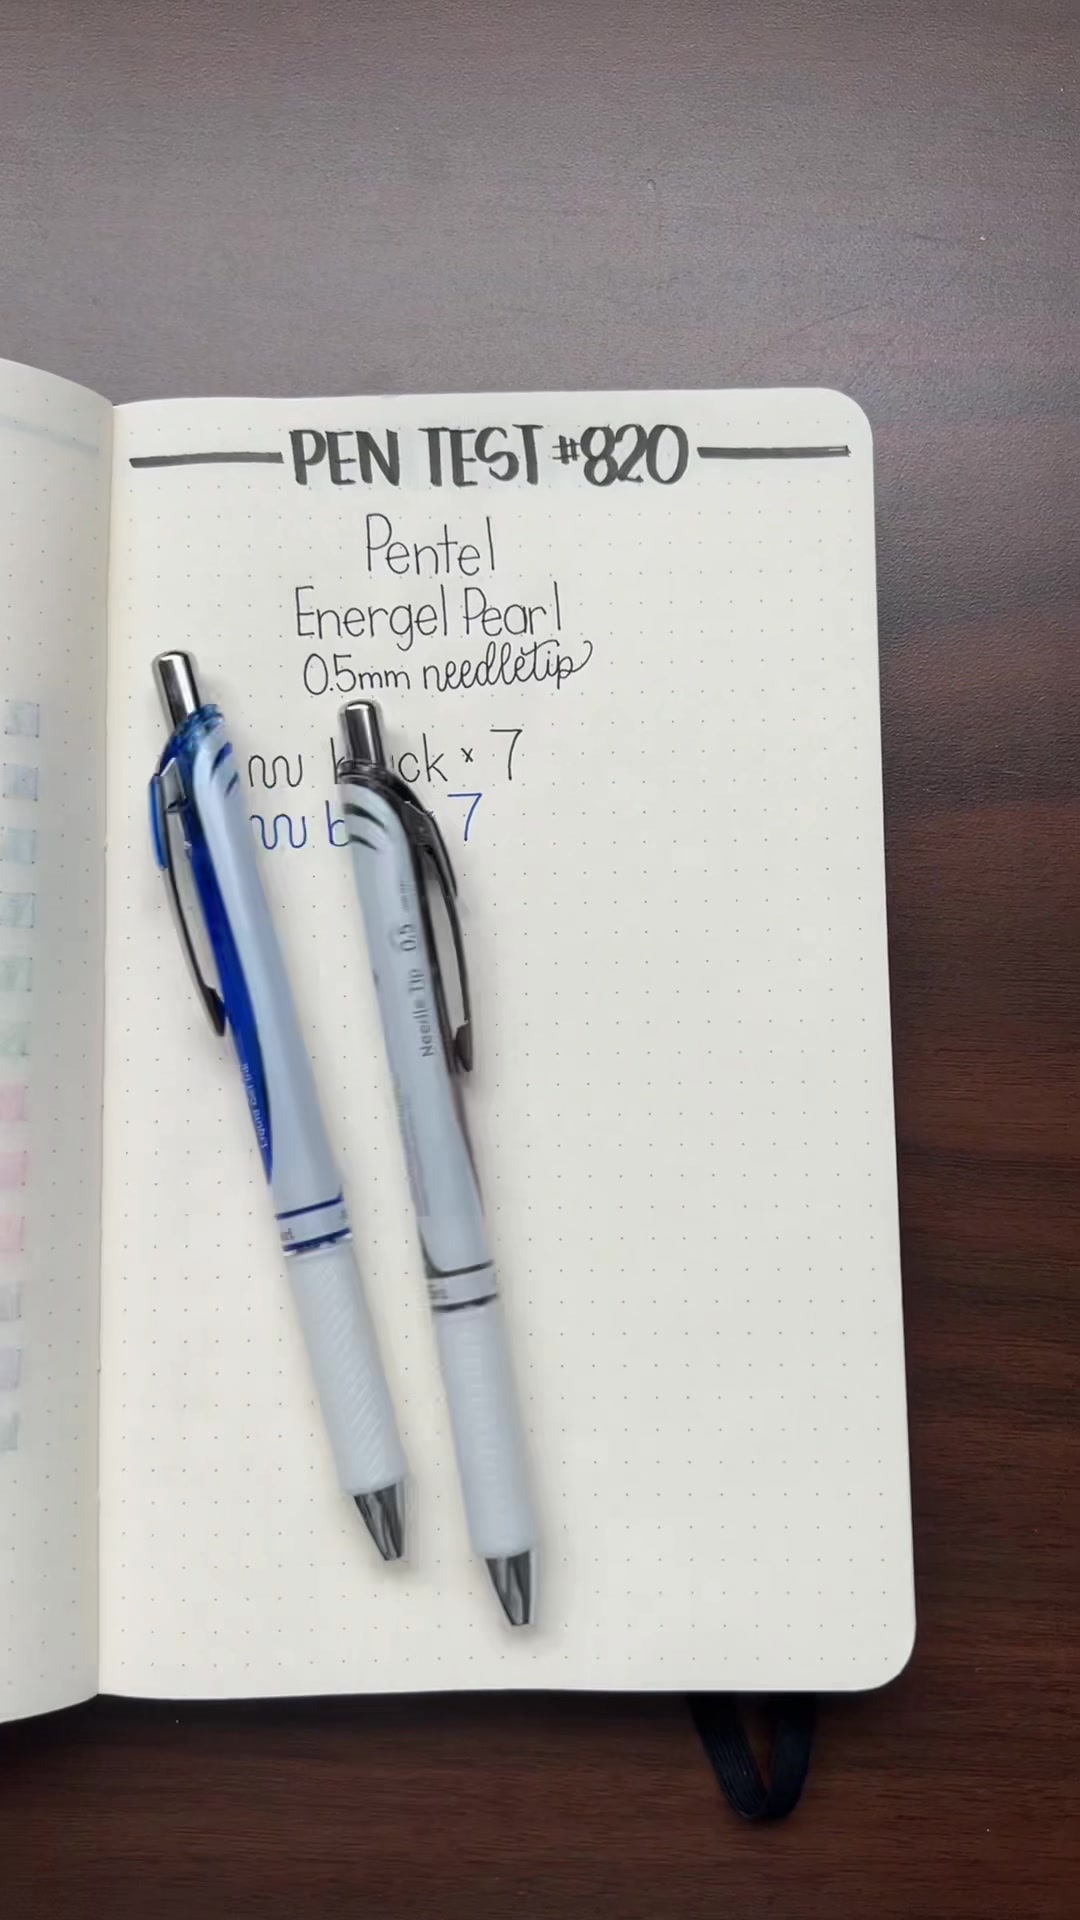 PEN TEST #820
Pentel
Energel Pearl
0.5mm needletip
× 7
7
Needle Tip 0.5